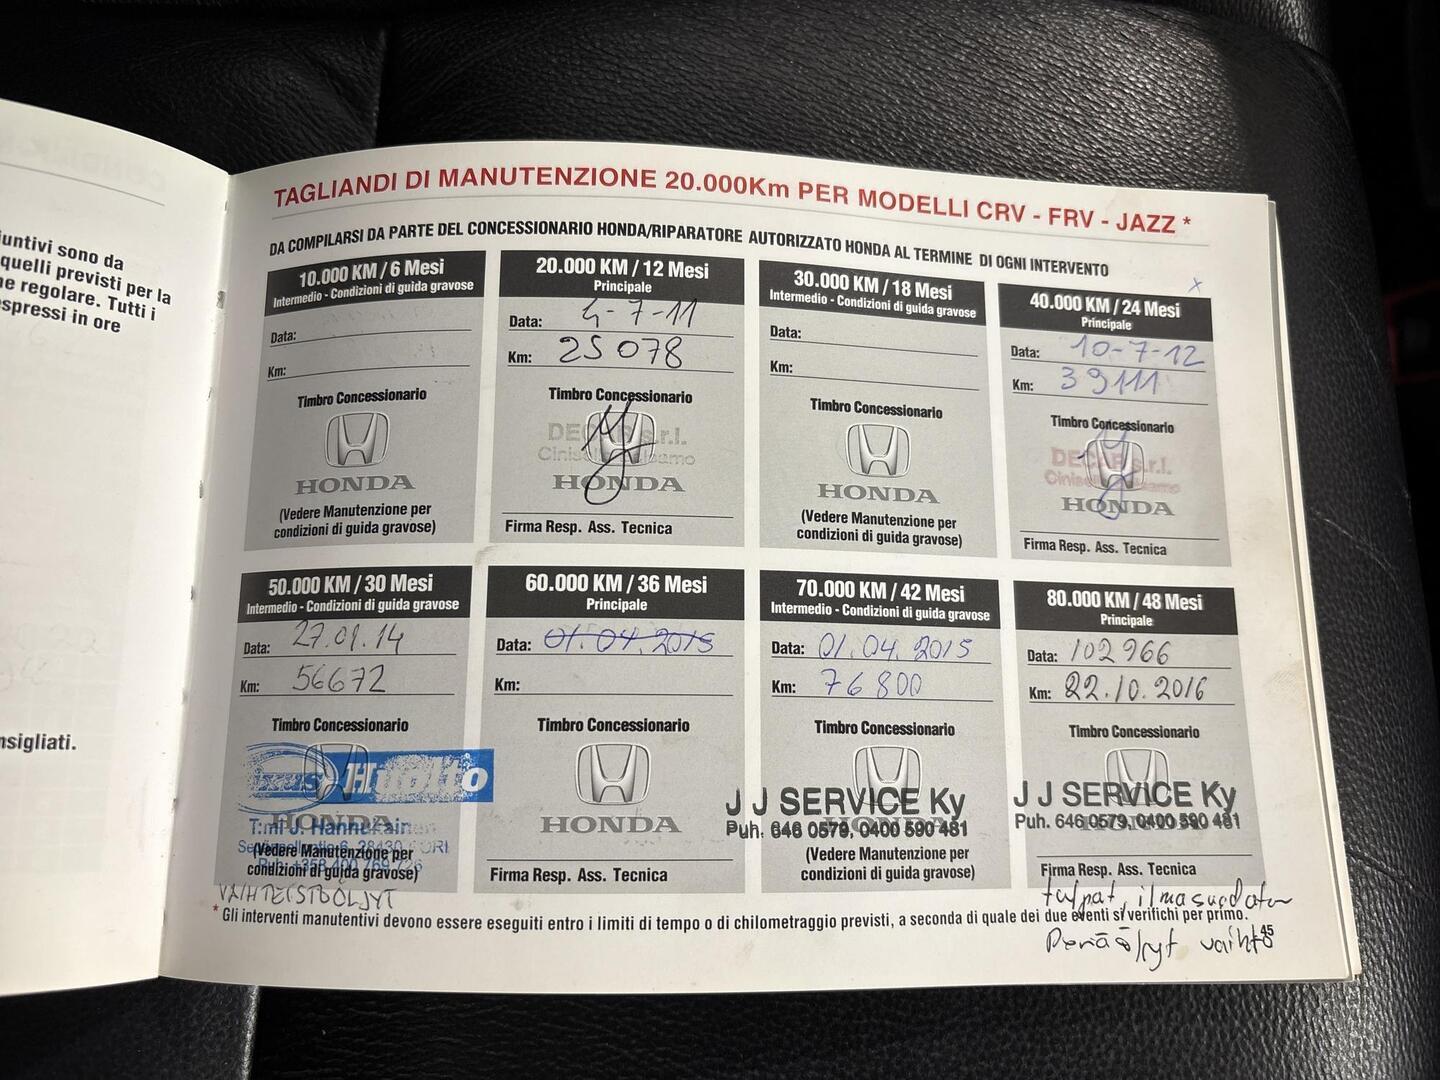 iuntivi sono da
quelli previsti per la
ne regolare. Tutti i
spressi in ore
nsigliati.
TAGLIANDI DI MANUTENZIONE 20.000Km PER MODELLI CRV - FRV - JAZZ *
DA COMPILARSI DA PARTE DEL CONCESSIONARIO HONDA/RIPARATORE AUTORIZZATO HONDA AL TERMINE DI OGNI INTERVENTO
10.000 KM / 6 Mesi
Intermedio - Condizioni di guida gravose
Data:
Km:
Timbro Concessionario
HONDA
(Vedere Manutenzione per
condizioni di guida gravose)
20.000 KM / 12 Mesi
Principale
Data: 4-7-11
Km: 25 078
Timbro Concessionario
DECAR s.r.l.
Cinisello Balsamo
HONDA
Firma Resp. Ass. Tecnica
30.000 KM / 18 Mesi
Intermedio - Condizioni di guida gravose
Data:
Km:
Timbro Concessionario
HONDA
(Vedere Manutenzione per
condizioni di guida gravose)
x
40.000 KM / 24 Mesi
Principale
Data: 10-7-12
Km: 39111
Timbro Concessionario
DECAR s.r.l.
Cinisello Balsamo
HONDA
Firma Resp. Ass. Tecnica
50.000 KM / 30 Mesi
Intermedio - Condizioni di guida gravose
Data: 27.01.14
Km: 56672
Timbro Concessionario
Hitolto
HONDA
T:mi J. Hannukainen
(Vedere Manutenzione per
condizioni di guida gravose)
VAIHTEISTOÖLJYT
60.000 KM / 36 Mesi
Principale
Data: 01.04.2015
Km:
Timbro Concessionario
HONDA
Firma Resp. Ass. Tecnica
70.000 KM / 42 Mesi
Intermedio - Condizioni di guida gravose
Data: 01.04.2015
Km: 76 800
Timbro Concessionario
J J SERVICE Ky
HONDA
Puh. 646 0579, 0400 590 481
(Vedere Manutenzione per
condizioni di guida gravose)
80.000 KM / 48 Mesi
Principale
Data: 102966
Km: 22.10.2016
Timbro Concessionario
J J SERVICE Ky
HONDA
Puh. 646 0579, 0400 590 481
Firma Resp. Ass. Tecnica
tulpat, ilmasuodatin
Peräöljyt vaihto
* Gli interventi manutentivi devono essere eseguiti entro i limiti di tempo o di chilometraggio previsti, a seconda di quale dei due eventi si verifichi per primo.
45